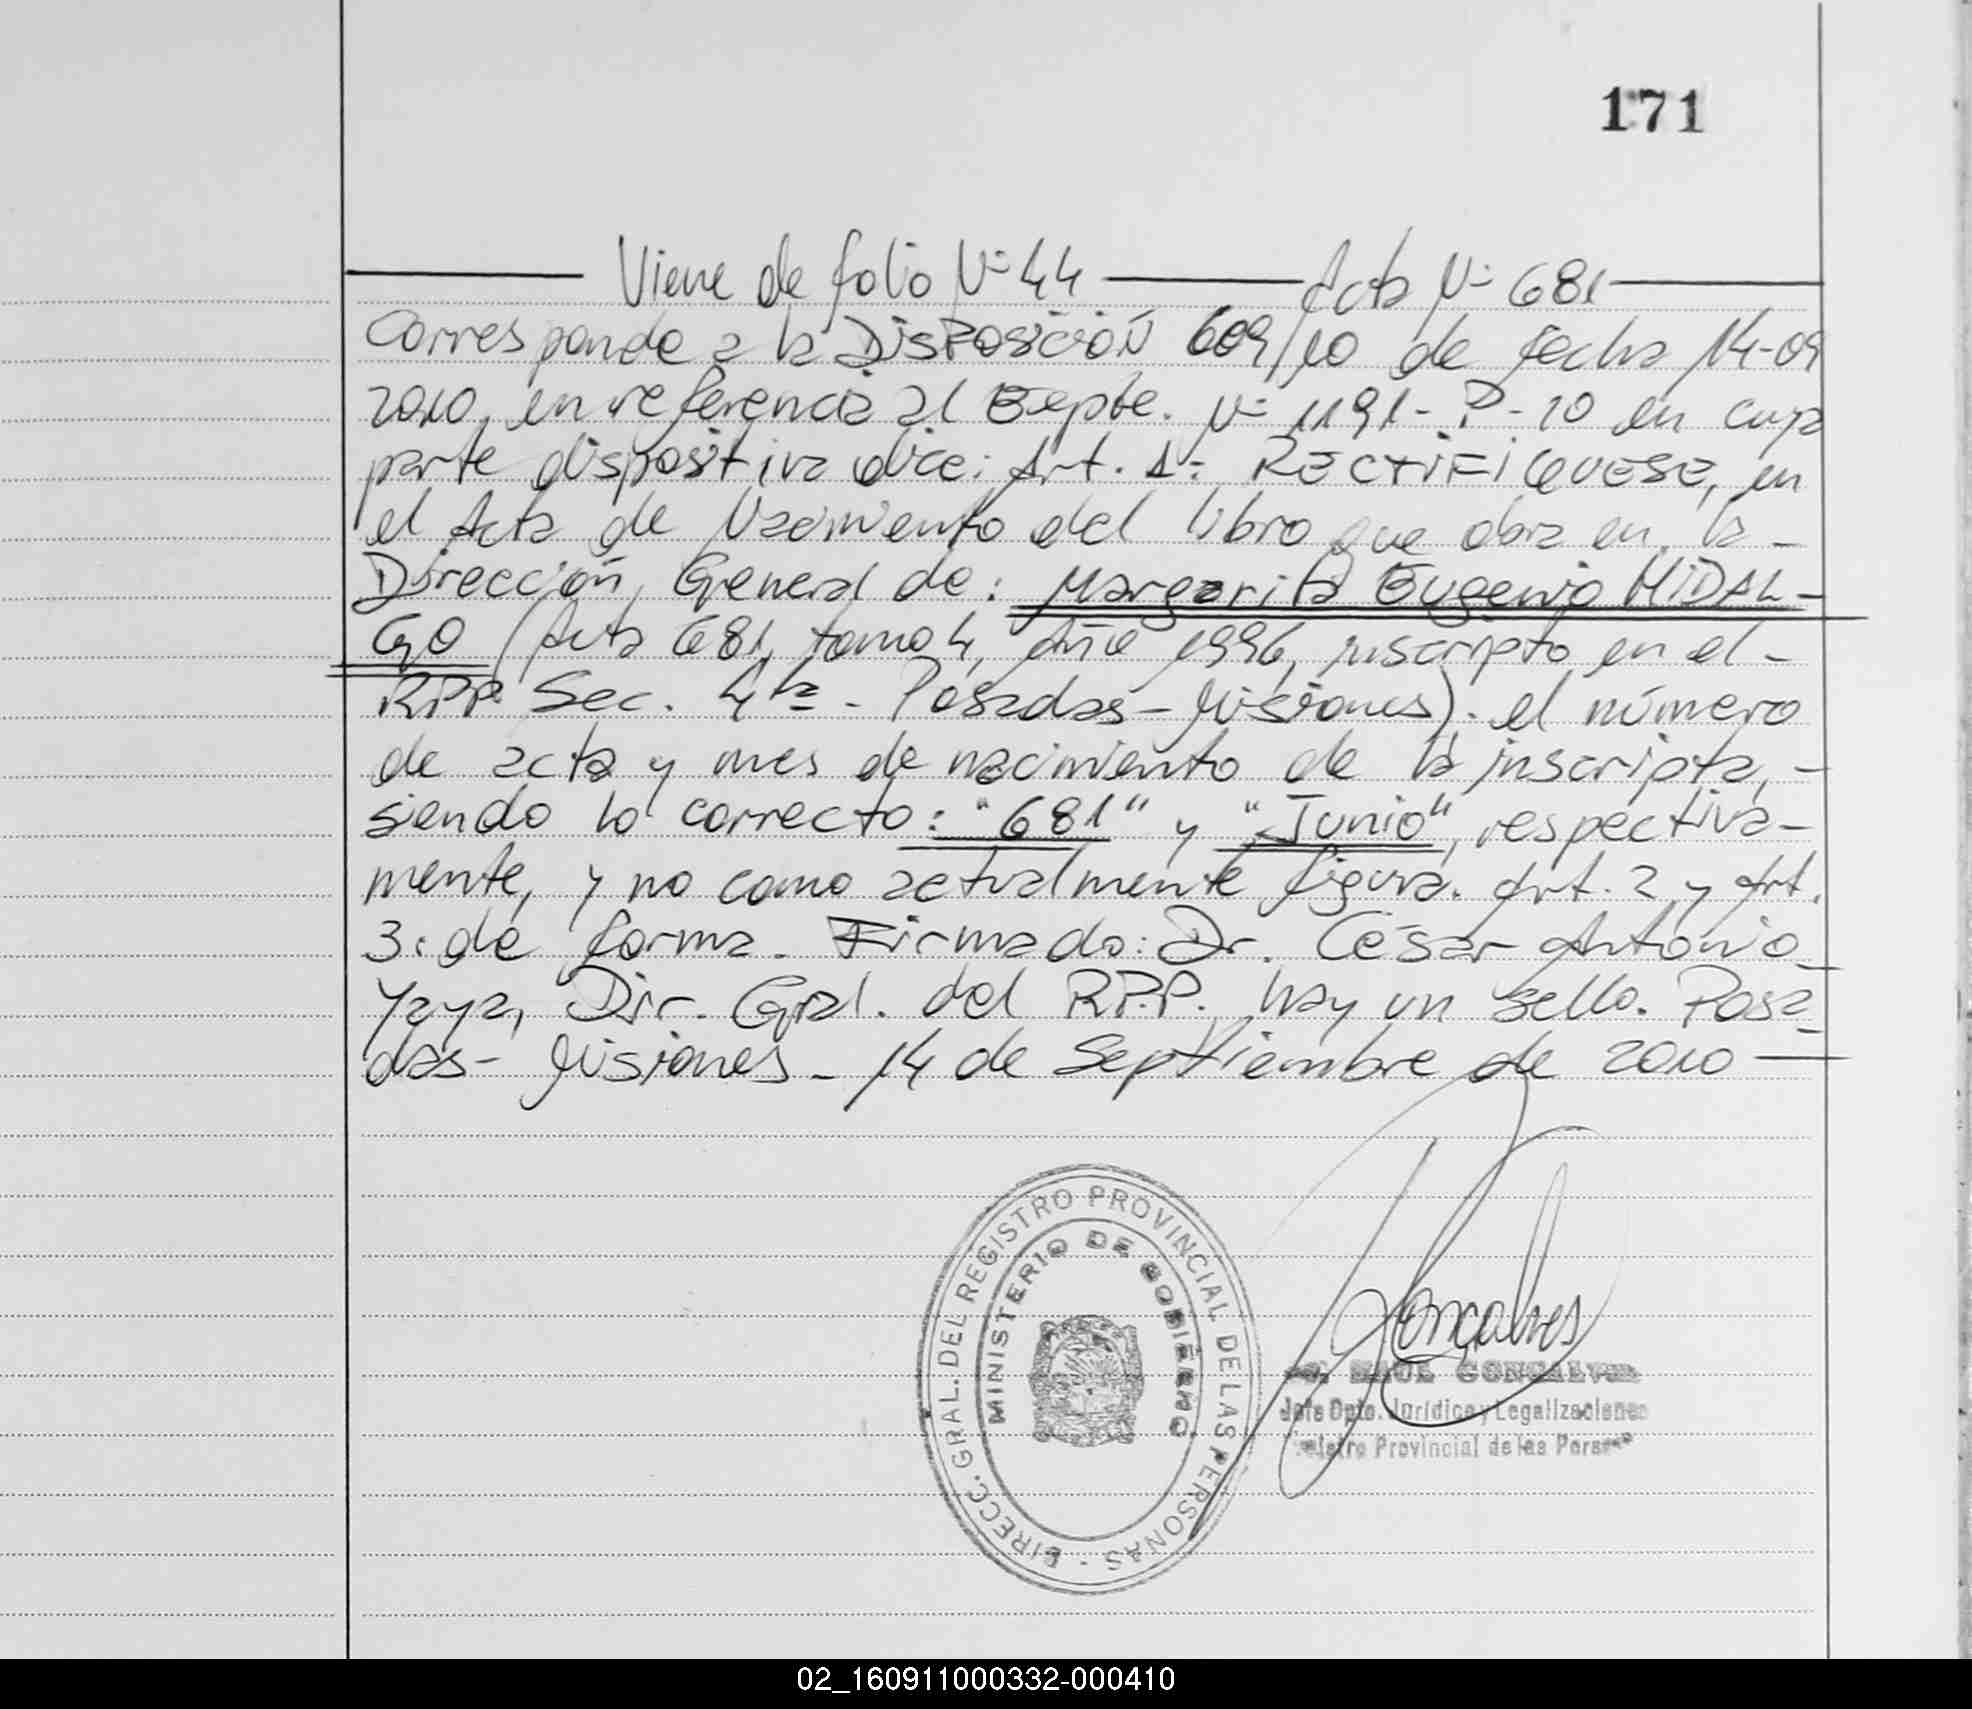 171
Viene de folio Nº 44 Acta Nº 681
Corresponde a la DISPOSICIÓN 609/10 de fecha 14-09
2010, en referencia al Expte. Nº 1191-P-10 en cuya
parte dispositiva dice: Art. 1: RECTIFIQUESE, en
el Acta de Nacimiento del libro que obra en la -
Dirección General de: Margarita Eugenia HIDAL-
GO (Acta 681, tomo 4, Año 1996, inscripto en el -
RPP Sec. 4ta - Posadas - Misiones). el número
de acta y mes de nacimiento de la inscripta, -
siendo lo correcto: "681" y "Junio", respectiva-
mente, y no como actualmente figura. Art. 2 y Art.
3: de forma. Firmado: Dr. César Antonio
Yaya, Dir. Gral. del R.P.P. hay un sello. Posa-
das - Misiones - 14 de Septiembre de 2010
DIRECC. GRAL. DEL REGISTRO PROVINCIAL DE LAS PERSONAS -
MINISTERIO DE GOBIERNO
Gonçalves
RAUL GONCALVES
Jefe Dpto. Jurídico y Legalizaciones
Registro Provincial de las Personas
02_160911000332-000410